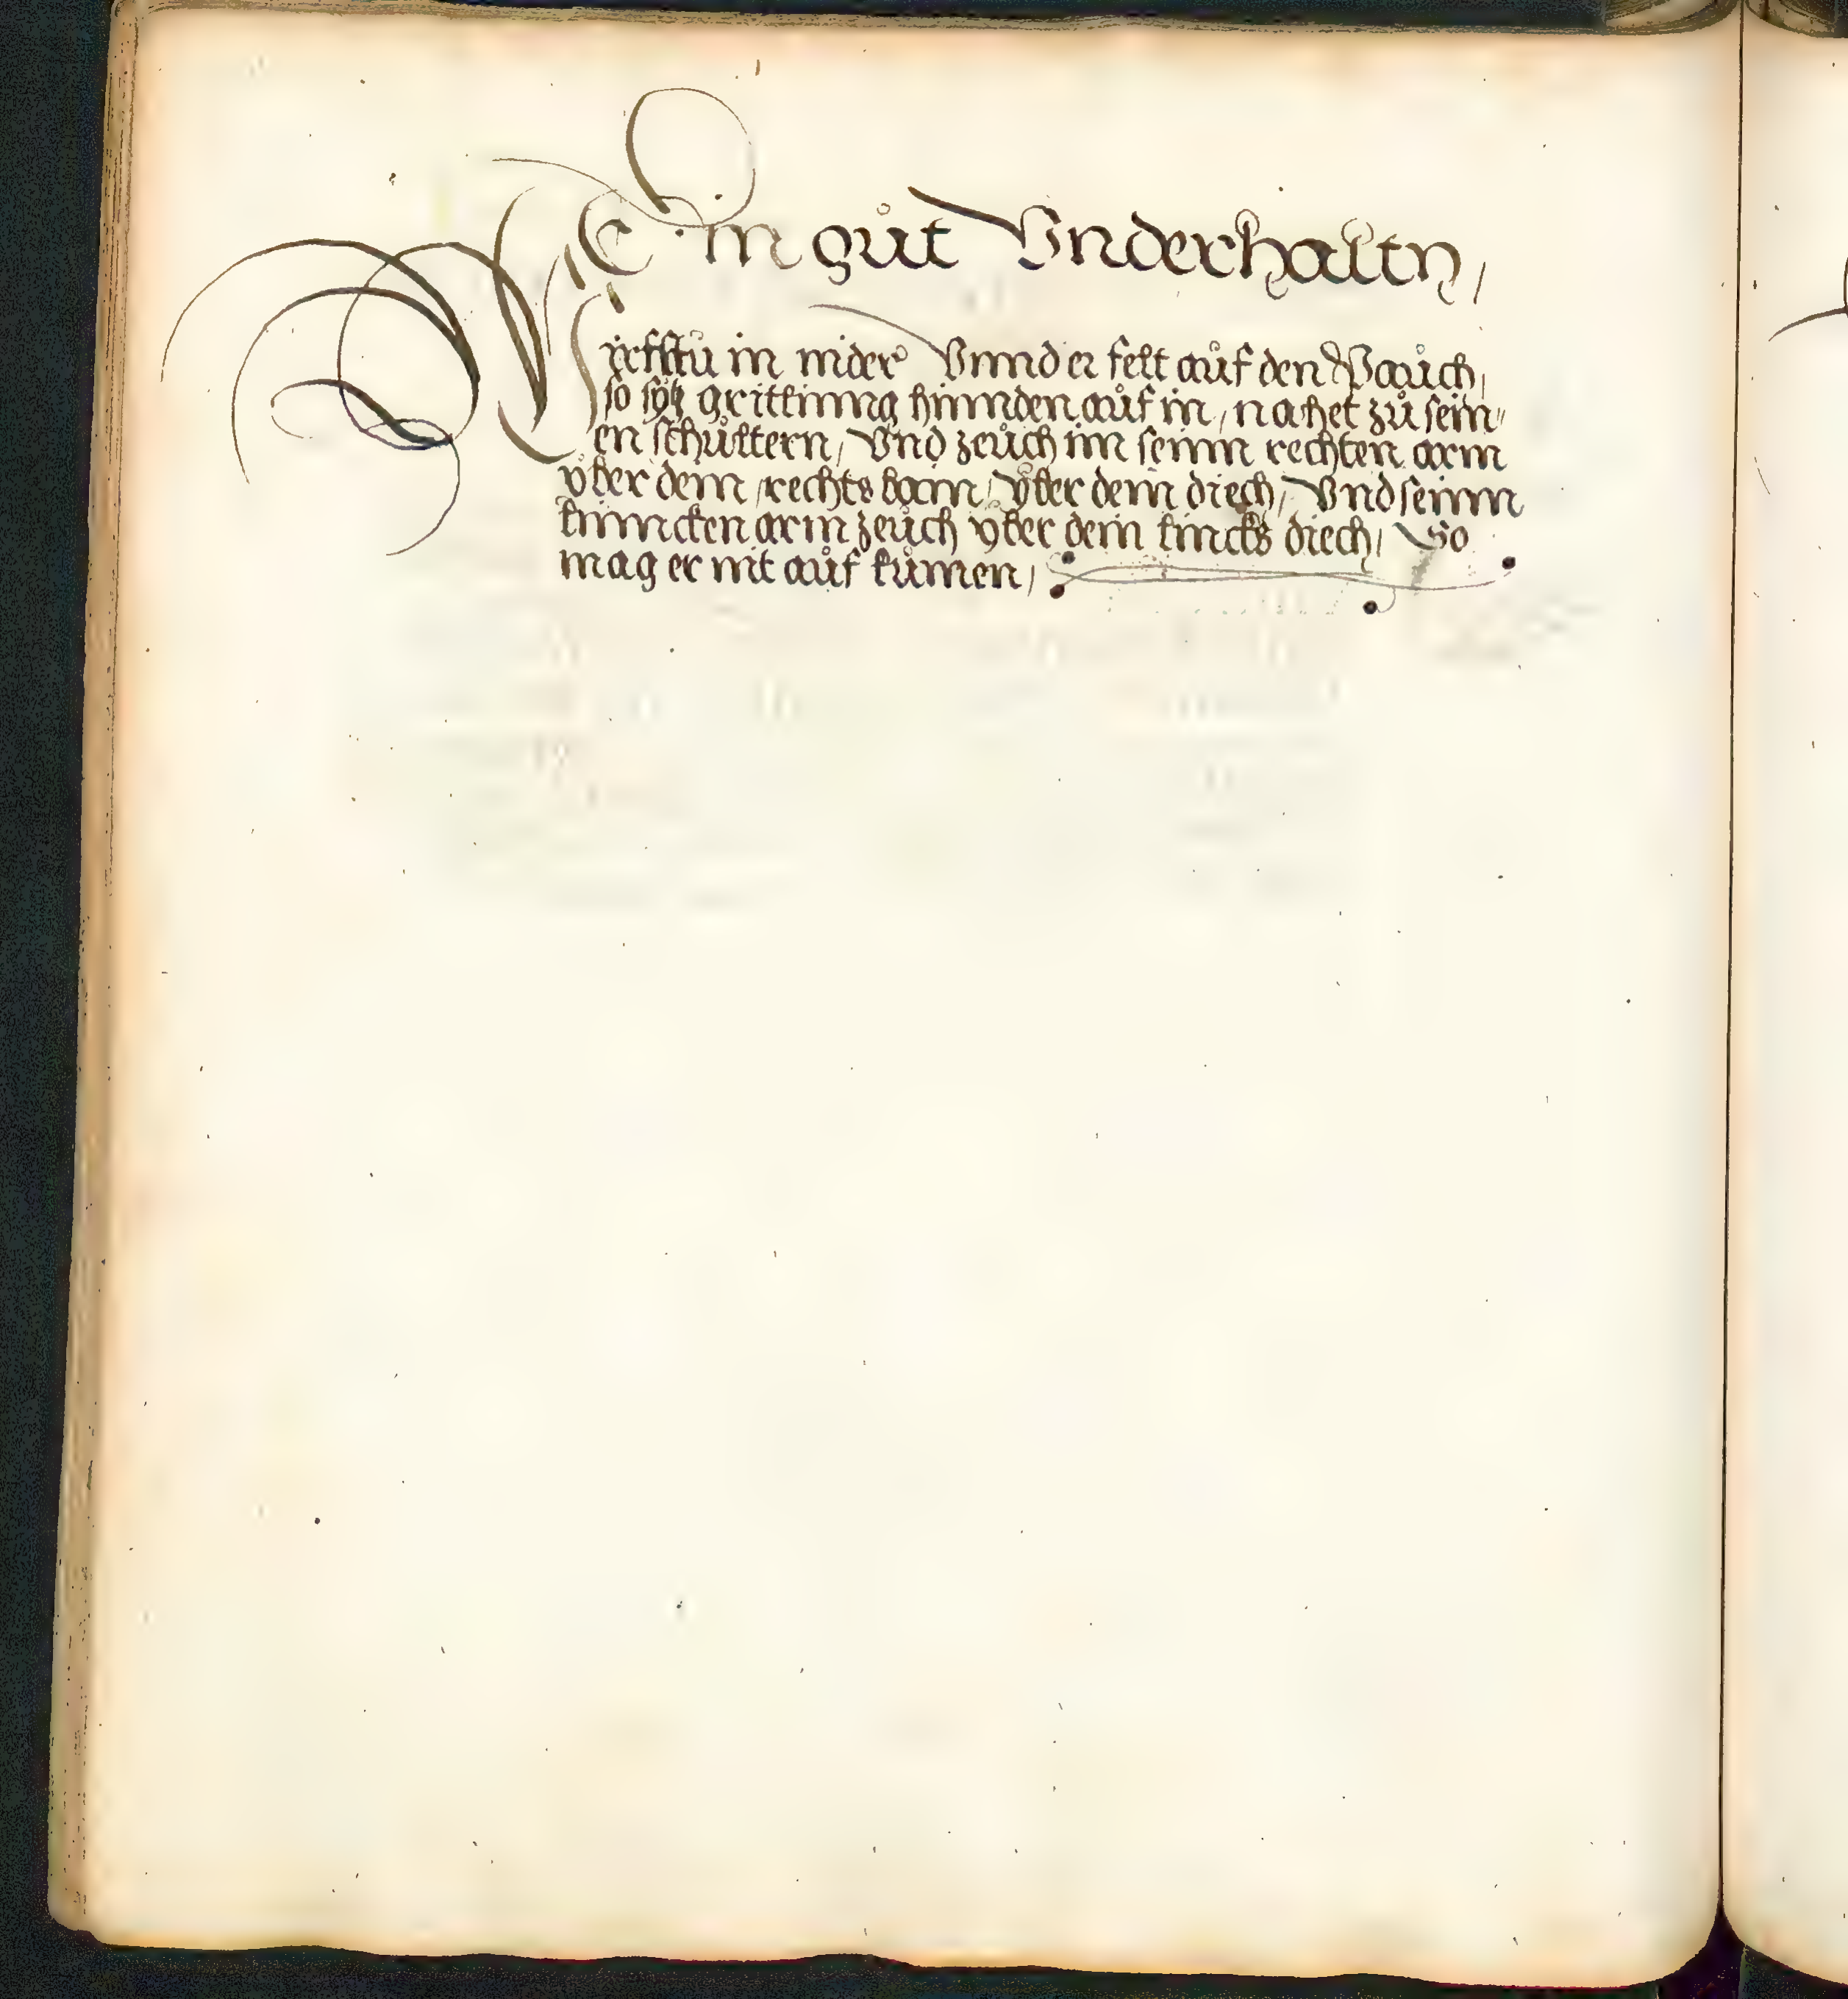 Ein gůt Vnderhaltn,
Wirfstu in nider Vnnd er felt auf den Pauch,
so sytz grittling hinnden auf in, nahet zů sein„
en schultern, Vnd zeuch im seinn rechten arm
vber dein rechts bain, vber dein diech, Vnd seinn
linncken arm zeuch vber dein lincks diech, So
mag er nit auf kumen,